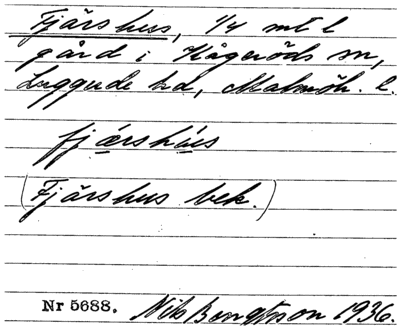 Fjärshus, 1/4 mtl
gård i Kågeröds sn,
Luggude hd, Malmöh. l.
fjǽrshús
(Fjärshus bek.)
Nr 5688. Nils Bengtsson 1936.